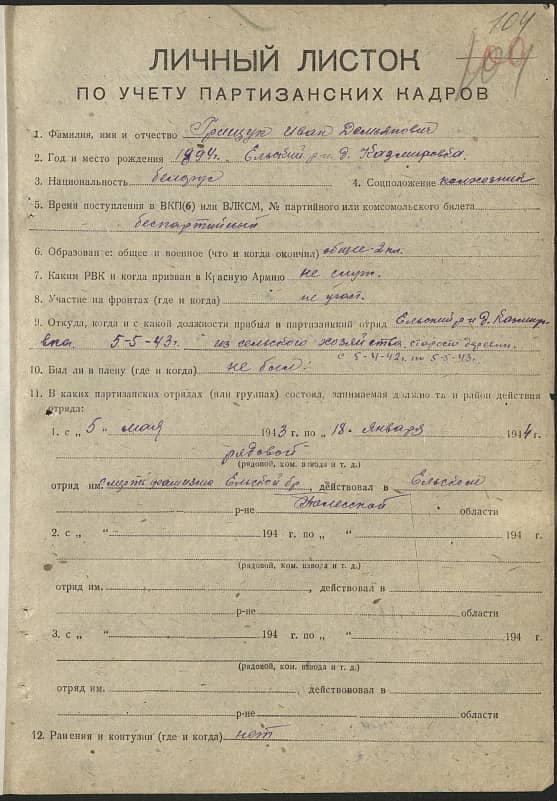 104
ЛИЧНЫЙ ЛИСТОК
ПО УЧЕТУ ПАРТИЗАНСКИХ КАДРОВ
1. Фамилия, имя и отчество Грищук Иван Демьянович
2. Год и место рождения 1894г. Ельский р-н д. Казмировка.
3. Национальность белорус 4. Соцположение колхозник
5. Время поступления в ВКП(б) или ВЛКСМ, № партийного или комсомольского билета
беспартийный
6. Образован е: общее и военное (что и когда окончил) общее-2 кл.
7. Каким РВК и когда призван в Красную Армию не служ.
8. Участие на фронтах (где и когда) не участ.
9. Откуда, когда и с какой должности прибыл в партизанкий отряд Ельский р-н д. Казмиро-
вка. 5-5-43г. из сельского хозяйства, староста деревни.
с 5-4-42г. по 5-5-43.
10. Был ли в плену (где и когда) не был.
11. В каких партизанских отрядах (или группах) состоял, занимаемая должно ть и район действия
отряда:
1. с „ 5 „ мая 1943 г. по „ 18 „ Января 1944 г.
рядовой
(рядовой, ком. взвода и т. д.)
отряд им. Смерть фашизма Ельской бр., действовал в Ельском
р-не Полесской области
2. с „ „ 194 г. по „ „ 194 г.
(рядовой, ком. взвода и т. д.)
отряд им. , действовал в
р-не области
3. с „ “ 194 г. по „ “ 194 г.
(рядовой, ком. взвода и т. д.)
отряд им. , действовал в
р-не области
12. Ранения и контузии (где и когда) нет